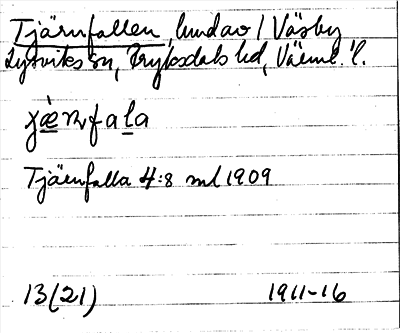 Tjärnfallen, hundav / Väsby
Lysviks sn, Fryksdals hd, Värml. l.
Tjärnfalla 4:8 ml 1909
13(21) 1911-16